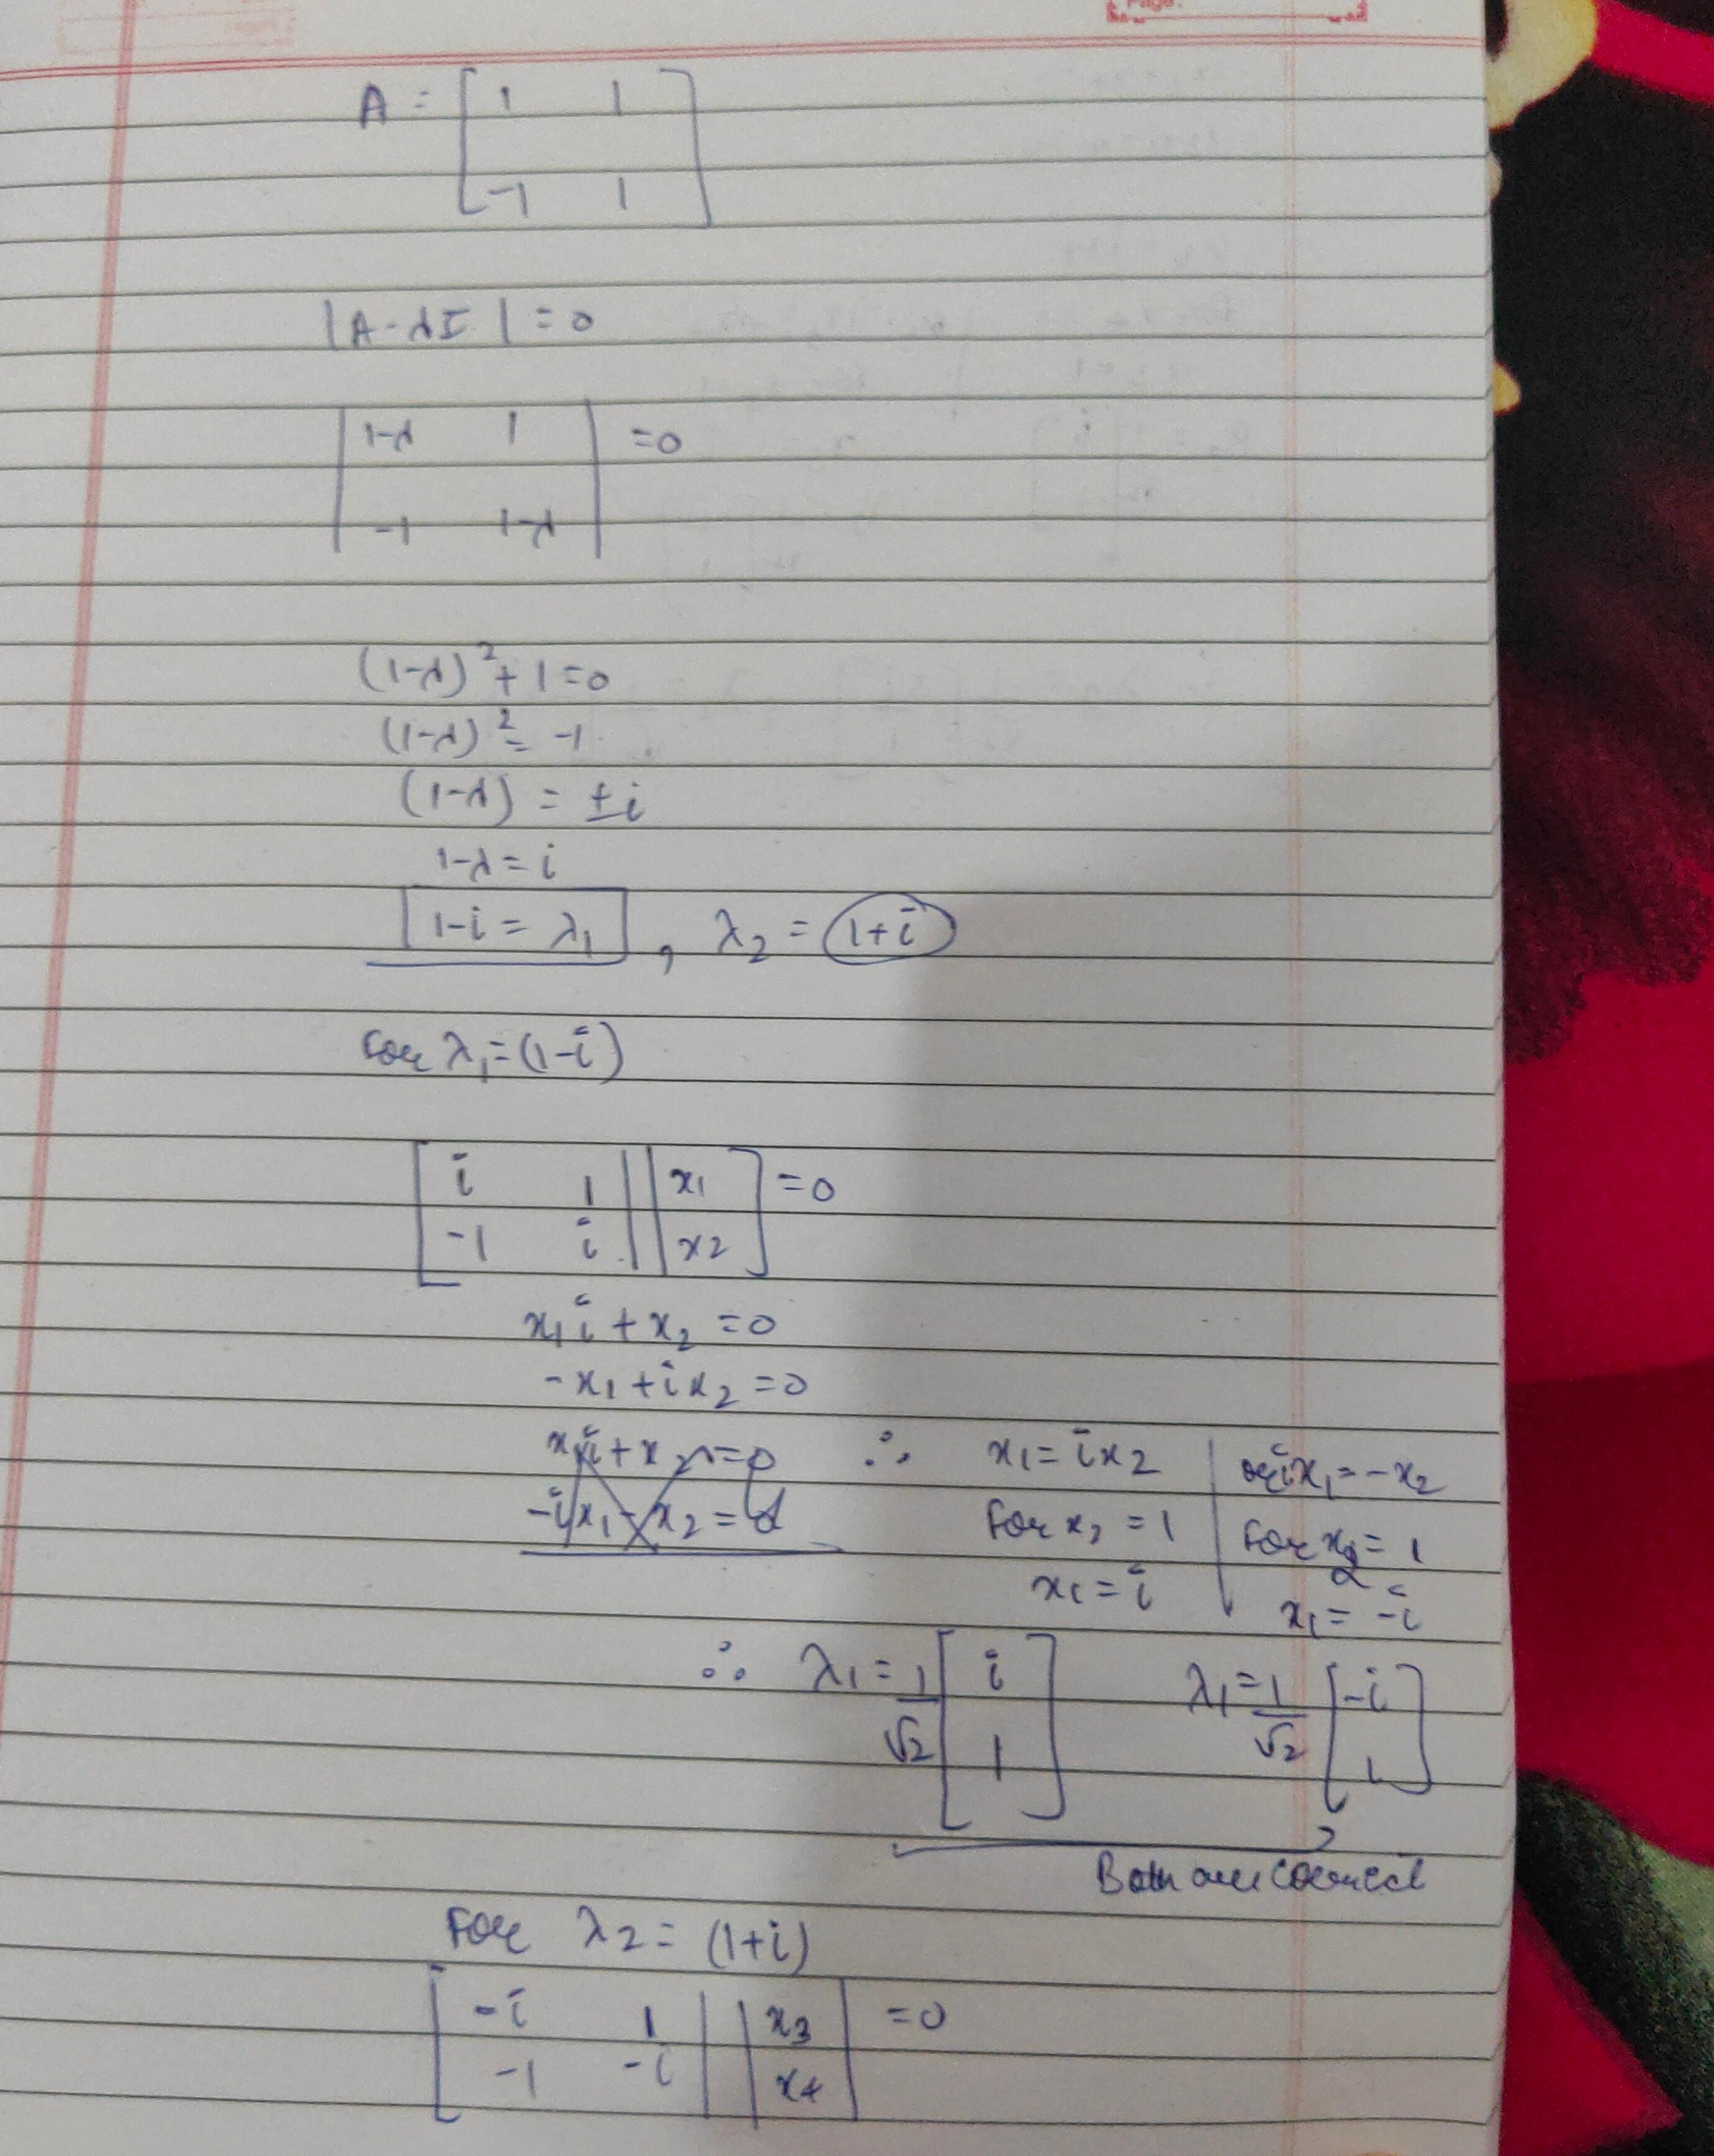 Page:
A = [ 1 1
-1 1 ]
|A-λI| = 0
| 1-λ 1 | =0
| -1 1-λ |
(1-λ)² + 1 = 0
(1-λ)² = -1
(1-λ) = ±i
1-λ = i
1-i = λ1 , λ2 = 1+i
For λ1 = (1-i)
[ i 1 ] [ x1 ] = 0
[ -1 i ] [ x2 ]
x1 i + x2 = 0
-x1 + i x2 = 0
x1 i + x2 = 0 ∴ x1 = i x2 | or i x1 = -x2
-i x1 - x2 = 0 For x2 = 1 | For x2 = 1
x1 = i | x1 = -i
∴ λ1 = 1/√2 [ i
1 ] λ1 = 1/√2 [ -i
1 ]
Both are correct
For λ2 = (1+i)
[ -i 1 ] [ x3 ] = 0
[ -1 -i ] [ x4 ]